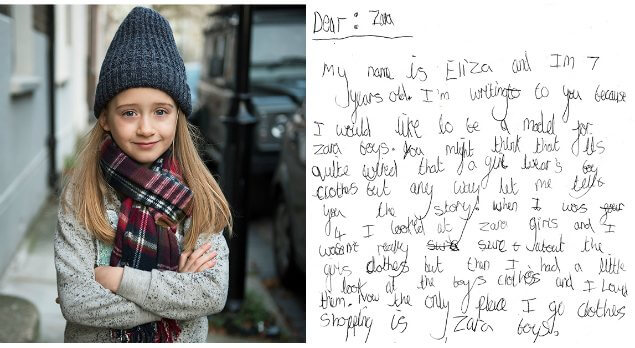 Dear: Zara
My name is Eliza and Im 7
years old. I'm writing to you because
I would like to be a model for
zara boys. You might think that its
quite weired that a girl wear's boy
clothes but any way let me tell
you the story. when I was
4 I looked at zara girls and I
wasent really sure about the
girls clothes but then I had a little
look at the boys clothes and I loved
them. Now the only place I go clothes
shopping is Zara boys.